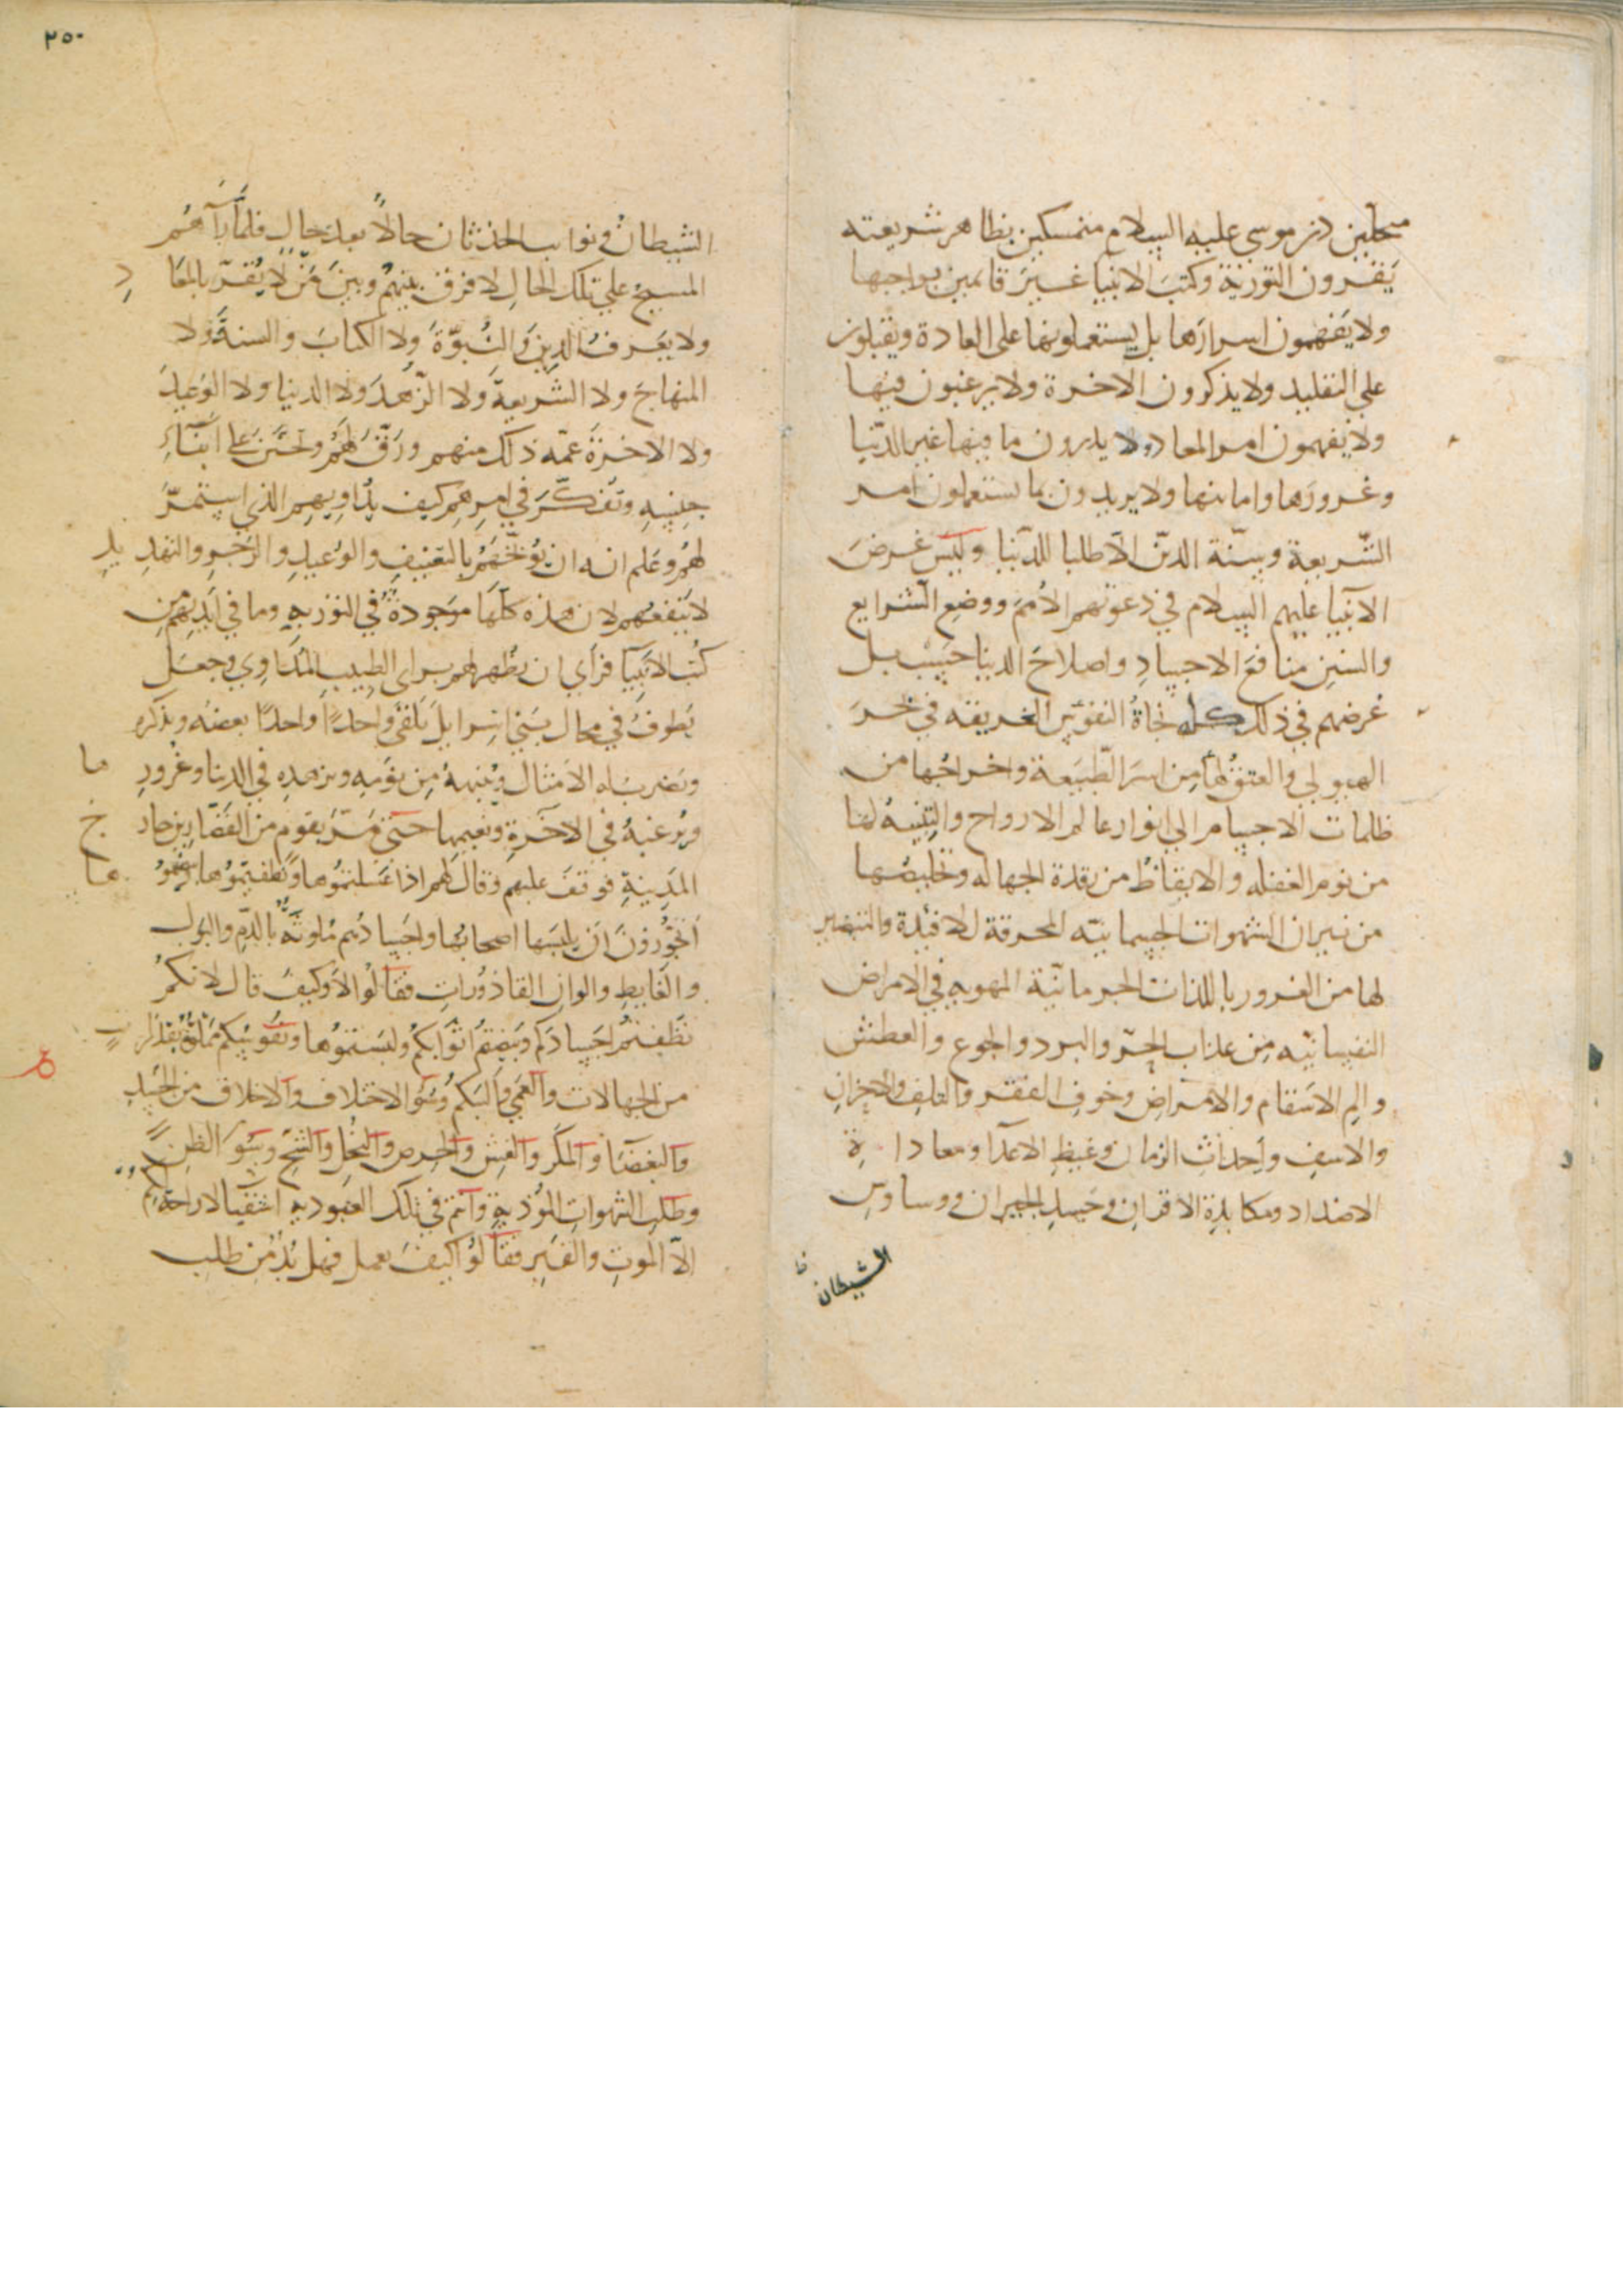 منتحلين دين موسى عليه السلام متمسكين بظاهر شريعته
يَقرون التورية وكتبَ الانبيا غير قائمين بواجبها
ولا يَفهمون اسرارَها بل يستعملونها على العادة ويقبلون
على التقليد ولا يذكرون الاخرة ولا يرغبون فيها
ولا يفهمون امر المعاد ولا يدرون ما فيها غير الدّنيا
وغرورَها وامانيها ولا يريدون بما يستعملون امر
الشّريعة وسنّة الدين الّا طلبا للدّنيا وليس غرضَ
الانبيا عليهم السلام في دعوتهم الأممَ ووضع الشرايع
والسنن منافعَ الاجسادِ واصلاحَ الدنيا حَسْب بل
غرضهم في ذلك كله نجاةُ النفوس الغريقه في بحر
الهيولى والعتقُ لها من اسر الطّبيعة واخراجُها من
ظلمات الاجسام الى انوار عالم الارواح والتنبيهُ لها
من نوم الغفله والايقاظُ من رقدة الجهاله وتخليصُها
من نيران الشهوات الجسمانيّه المحرقة للافئدة والتبصير
لها من الغرور باللذات الجرمانيّة المهويه في الامراض
النفسانيّه من عذاب الحرّ والبرد والجوع والعطش
والم الاسقام والامراض وخوف الفقر والتلف والاحزان
والاسف واحداث الزمان وغيظ الاعدا ومعاداة
الاضداد ومكابدة الاقران وحسد الجيران ووساوس
الشيطان
٢٥٠
الشيطان ونوايب الحدثان حالاً بعد حال فلمّا رآهُم
المسيح على تلك الحال لا فرق بينهم وبين مَن لا يُقرّ بالمعاد
ولا يَعرفُ الدين والنّبوّةَ ولا الكتابَ والسنةَ ولا
المنهاجَ ولا الشريعةَ ولا الزّهدَ ولا الدنيا ولا الوَعيدَ
ولا الاخرةَ غمّه ذلك منهم ورَقّ لهم وتحَنّنَ على ابناءِ
جنسِه وتفكّرَ في امرِهم كيف يُداوِيهم الذي استمرَّ
لهم وعَلم انه ان يُوبّخهم بالتعنيف والوَعيدِ والزجرِ والتهديدِ
لا ينفعهم لان هذه كلّها موجودة في التوريه وما في ايديهم من
كُتب الانبيآ فرأى ان يظهر لهم برأى الطبيب المُداوِي وجعل
يَطوفُ في محال بَني اسرايل يَلقى واحدًا واحدًا يعظه ويذكره
ويَضرب له الامثال ويُنبهُهُ من نومه ويزهده في الدنيا وغرورِها
ويُرغبهُ في الاخرةِ ونعيمها حتى مَرّ بقوم من القَصّارين خارج
المدينةِ فوقفَ عليهم وقال لهم اذا غسلتمُوها ونظفتمُوها
اتجوِّزونَ اَن يلبسَها اصحابُها واجسادُهم مُلوثةٌ بالدّم والبول
والغايط والوان القاذُورات فقالوا لا وكيف قال لانكمُ
نظّفتُم اجسادَكم وبَيضتم اثوابكمُ ولبستمُوها ونفوسكم
من الجهالات والعَمَى والبَكم وسُوّ الاختلاف والاخلاق من الحسدِ
والبغضَا والمكر والغِش والحرص والبُخل والشّحّ وسُوَ الظن
وطلبِ الشهوات المُوذيةِ وانتم في تلك العبوديه اشقيا لا راحة لكم
الّا الموتِ والقبر فقالوا كيف نعمل فهل بُدّ من طلب